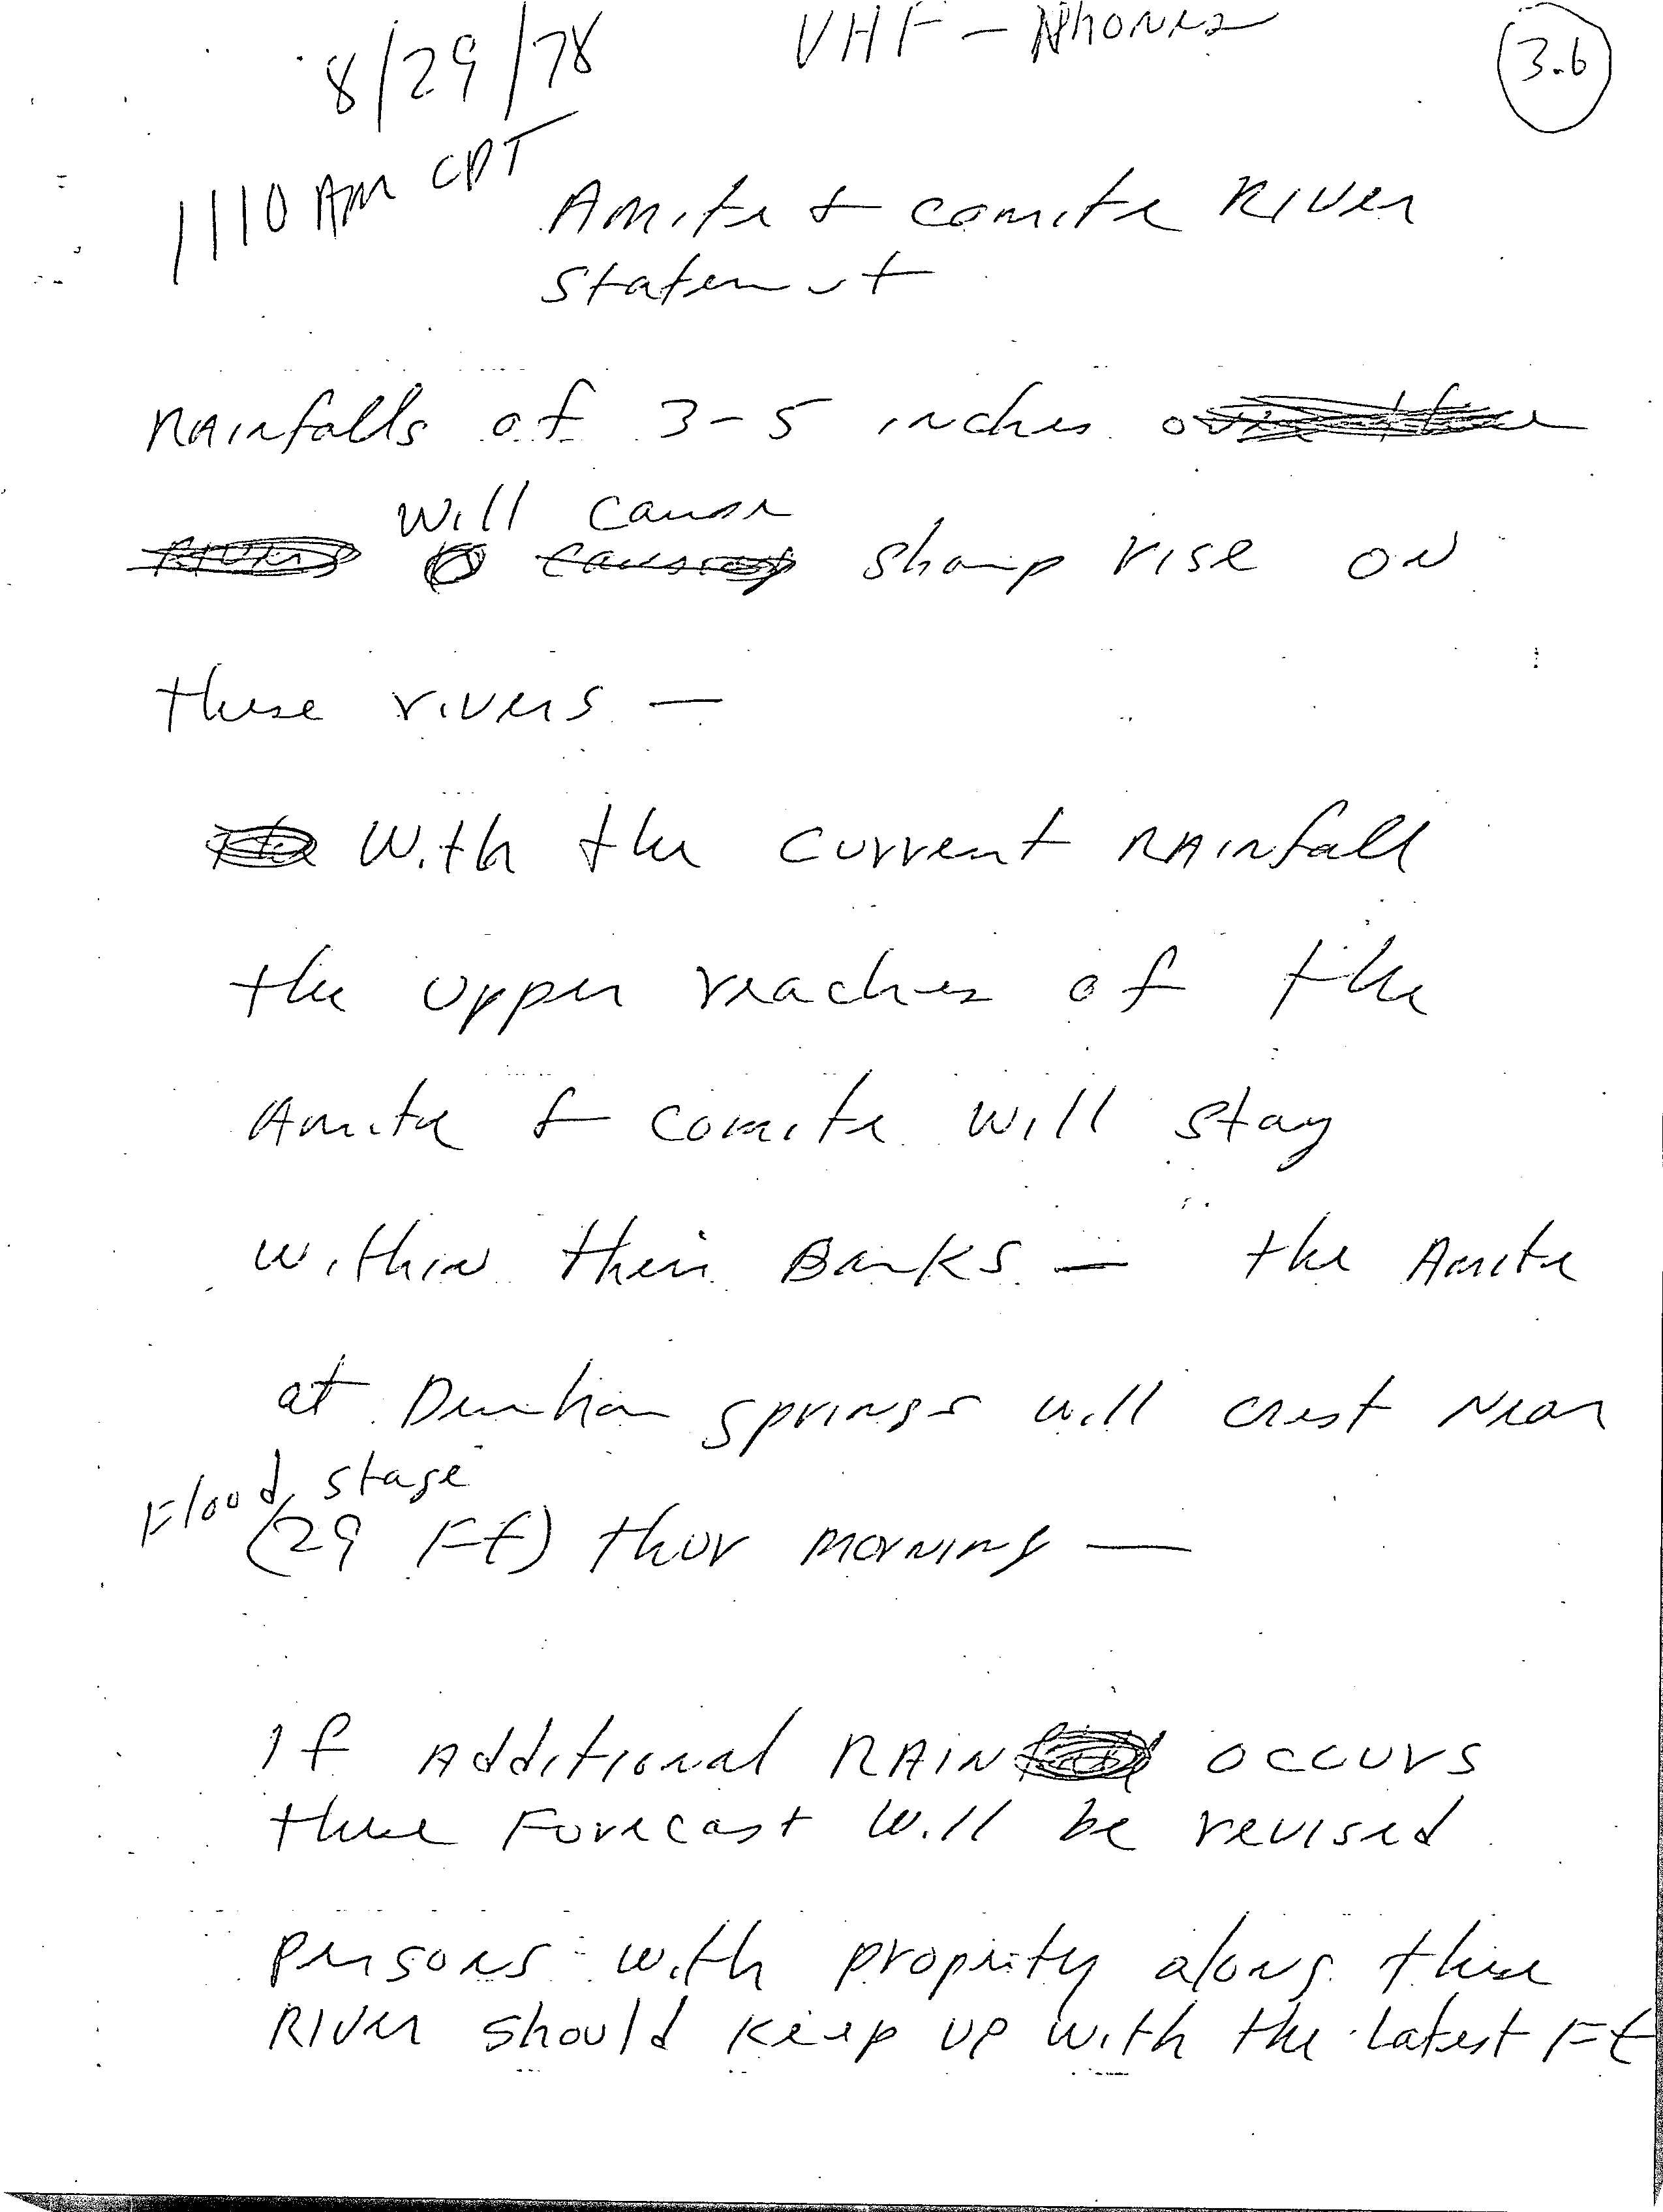 8/29/78 VHF - Phones 3.6
1110 AM CDT
Amite & Comite River
Statement
RAinfalls of 3-5 inches
will cause
sharp rise on
these rivers —
With the current RAinfall
the upper reaches of the
Amite & Comite will stay
within their Banks — the Amite
at Denham Springs will crest near
Flood stage
(29 Ft) thur morning —
If Additional RAIN occurs
these Forecast will be revised
persons with property along these
River should keep up with the latest